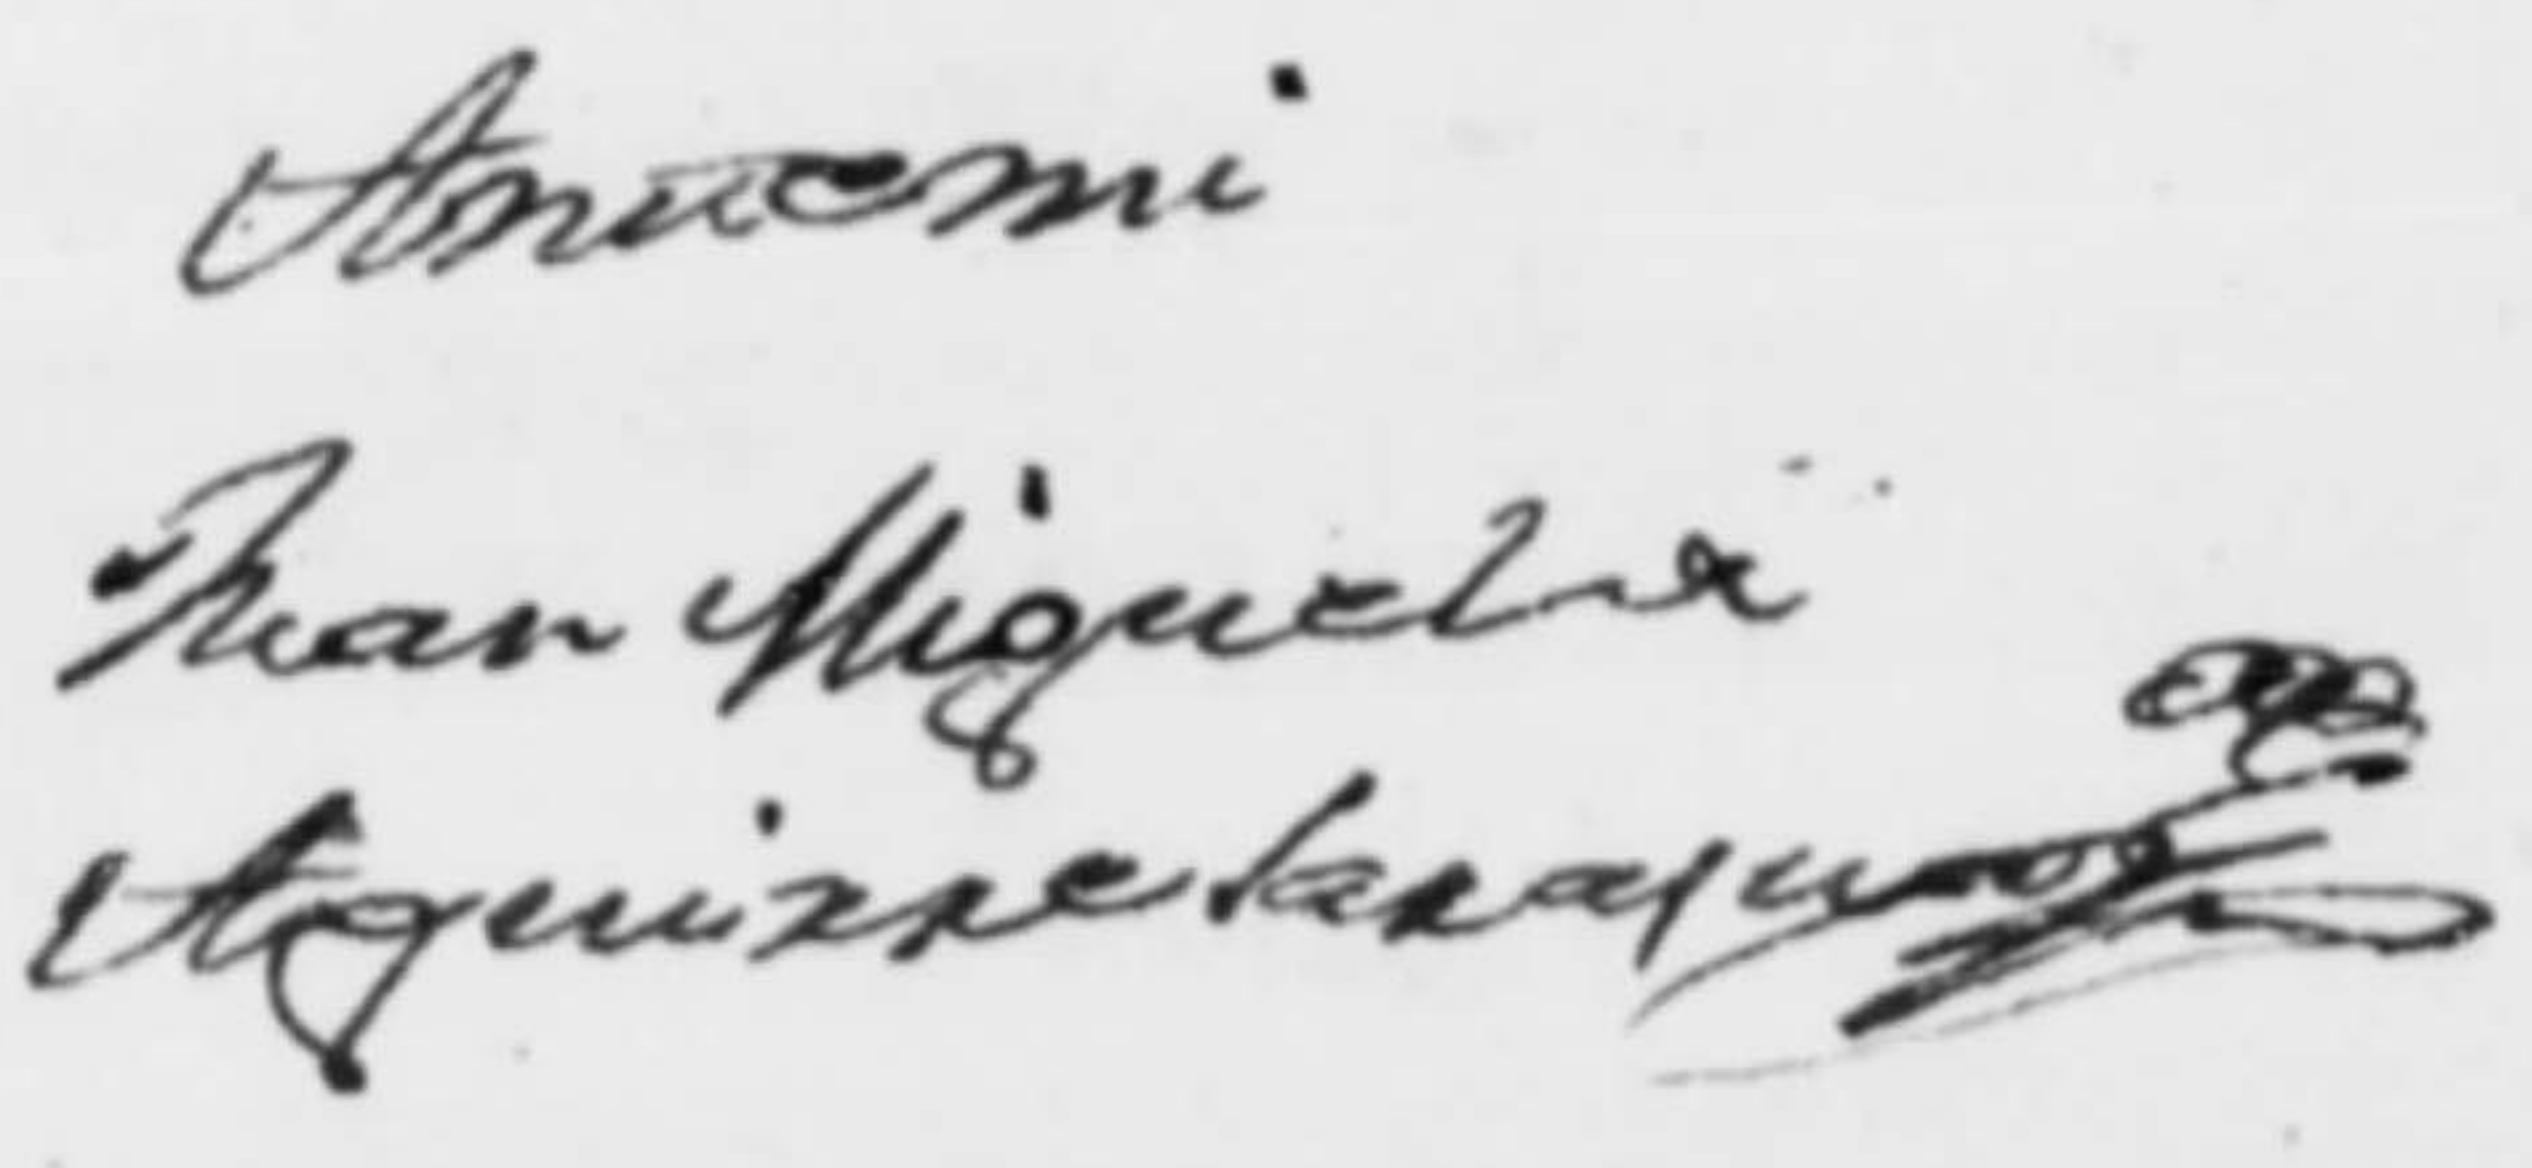 Antoni
Juan Miguel de
Aguirre Sarasua